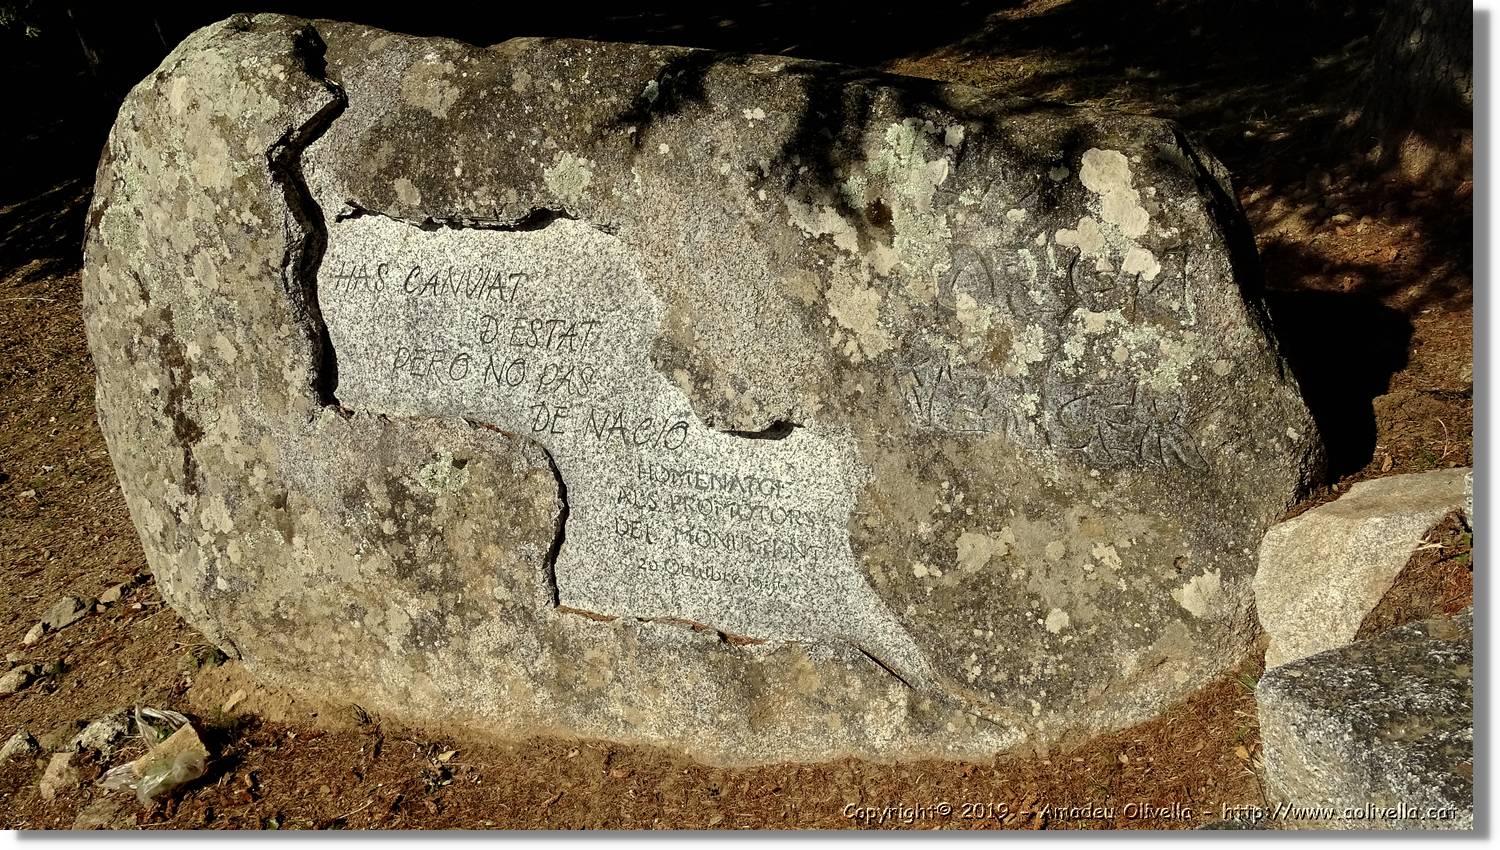 HAS CANVIAT
D'ESTAT
PERÒ NO PAS
DE NACIÓ
HOMENATGE
ALS PROMOTORS
DEL MONUMENT
20 Octubre
VENCER
Copyright© 2019 - Amadeu Olivella - http://www.aolivella.cat